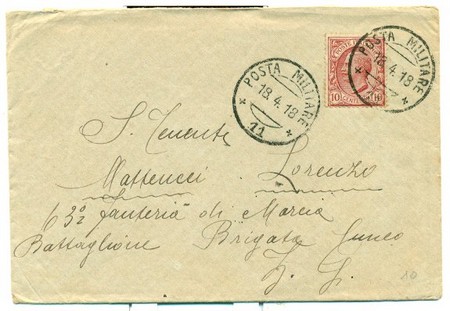 POSTA MILITARE
18.4.18
11
POSTA MILITARE
18.4.18
POSTE
10 CENT 10
S. Tenente
Matteucci Lorenzo
63º fanteria di Marcia
Battaglione Brigata Cuneo
Z. G.